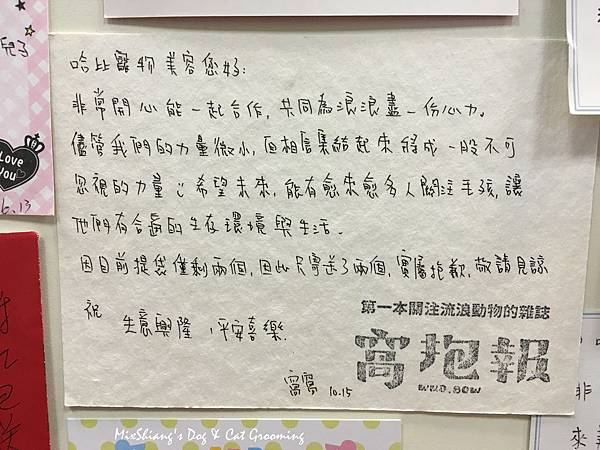 哈比寵物美容您好:
非常開心能一起合作,共同為浪浪盡一份心力。
儘管我們的力量微小,但相信集結起來將成一股不可
忽視的力量 希望未來,能有愈來愈多人關注毛孩,讓
他們有合適的生存環境與生活。
因目前提袋僅剩兩個,因此只寄送了兩個,實屬抱歉,敬請見諒
祝 生意興隆,平安喜樂.
窩窩 10.15
第一本關注流浪動物的雜誌
窩抱報
WUO.BOW
Love you
6.13
MixShiang's Dog & Cat Grooming